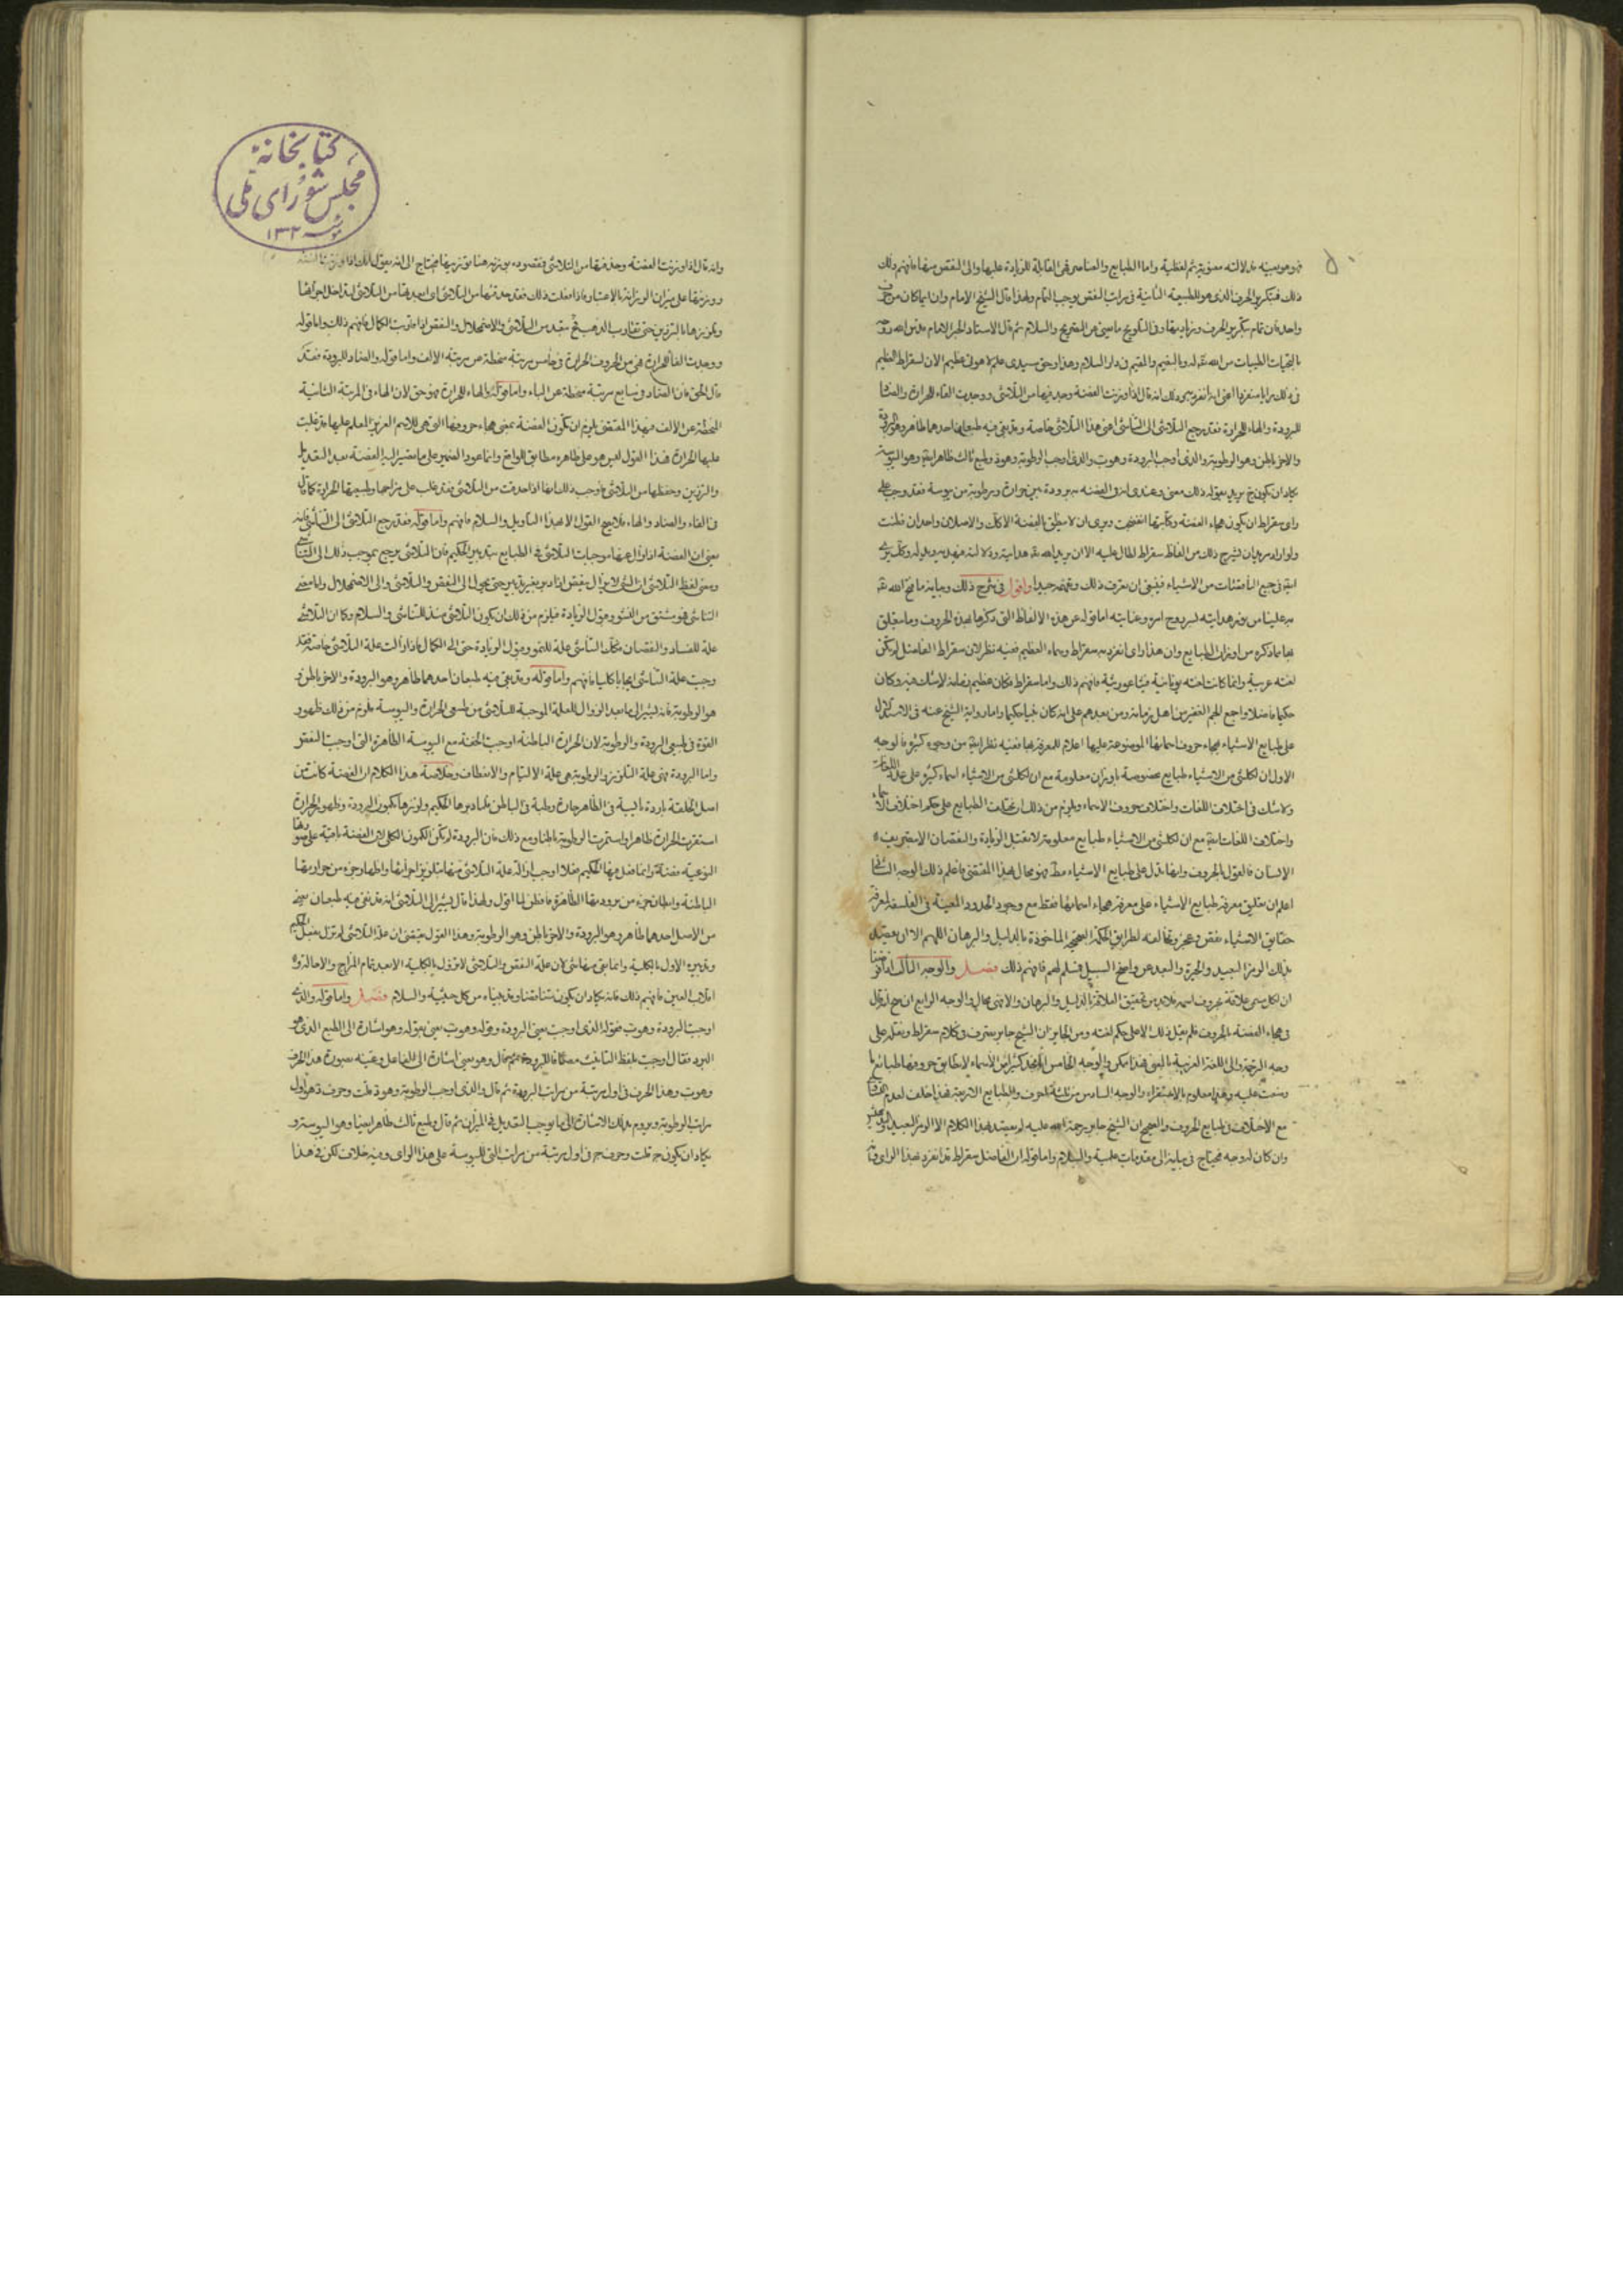 فهو هو بعينه بدلالته معنوية ثم لفظية واما الطبايع والعناصر فهى القابلة للزيادة عليها والى النقص منها فافهم ذلك
ذلك فبتكرير الحرف الذى هو للطبيعة الثانية فى مراتب النقص يوجب التمام ولهذا قال الشيخ الامام وان اما كان من حرف
واحد فان تمام بتكرير الحرف وزيادتها وفى التلويح ما يغنى عن التصريح والسلام ثم قال الاستاد الحبر الامام قدس الله روحه
بالتحيات الطيبات من الله تعالى وبالنعيم والمقيم فى دار السلام وهذا وحق سيدى علم لاهوتى عظيم الان لسقراط العظيم
فى ذلك رايا منفردا اعنى انه انفرد به وذلك انه قال اذا وزنت الفضة وجد فيها من التلاشى ووجدت الفاء للحرارة والضاد
للبرودة والهاء للحرارة فقد رجع التلاشى الى التناشى اعنى هذا التلاشى خاصة وقد بقى فيه طبعان احدهما ظاهر وهو البرودة
والاخر باطن وهو الرطوبة والذى اوجب البرودة وهو ب والذى اوجب الرطوبة وهو د وطبع ثالث ظاهر ايضا وهو اليبوسة
يكاد ان يكون ج يريد بقوله ذلك معنى وعندى ان فى الفضة برودة بين حرارة ورطوبة من يبوسة فقد وجب على
راى سقراط ان يكون هجاء الفضة وكأنها انفضحت
ولو اراد مريد ان يشرح ذلك من الفاظ سقراط لطال عليه الا ان يريد الله تعالى هدايته ودلالته فيهديه
ايضا فى جميع الناقصات من الاشياء فينبغى ان تعرف ذلك وتفهمه جيدا واقول فى شرح ذلك وبيانه ما فتح الله تعالى
به علينا من نور هدايته لسر روح امره وعنايته اما قوله عن هذه الالفاظ التى ذكرها بهذه الحروف وما يتعلق
بها مما ذكره من اوزان الطبايع وان هذا راى انفرد به سقراط وسماه العظيم ففيه نظر لان سقراط الفاضل لم تكن
لغته عربية وانما كانت لغته يونانية فيثاغورية فافهم ذلك واما سقراط فكان عظيم زمانه لا شك فيه وكان
حكيما فاضلا واجمع الجم الغفير من اهل زمانه ومن بعدهم على انه كان نبيا حكيما واما رواية الشيخ عنه فى الاستدلال
على طبايع الاشياء بهجاء حروف اسمائها الموضوعة عليها اعلام للمعرفة بها ففيه نظر ايضا من وجوه كثيرة فالوجه
الاول ان لكل شئ من الاشياء طبايع مخصوصة باوزان معلومة مع ان لكل شئ من الاشياء اسماء كثيرة على عدد اللغات
ولا شك فى اختلاف اللغات واختلاف حروف الاسماء ويلزم من ذلك ان تختلف الطبايع على حكم اختلاف الاسماء
واختلاف اللغات ايضا مع ان لكل شئ من الاشياء طبايع معلومة لا تقبل الزيادة والنقصان الا بتصريف
الانسان فالقول بالحروف وانها تدل على طبايع الاشياء مطلقا فهو محال بهذا المقتضى فاعلم ذلك الوجه الثانى
اعلم ان تعليق معرفة طبايع الاشياء على معرفة هجاء اسمائها فقط مع وجود الحدود المعينة فى الفلسفة لمعرفة
حقايق الاشياء نقص وعجز ومخالفة لطرايق الحكمة الصحيحة الماخوذة بالدليل والبرهان اللهم الا ان يقصد
بذلك الرمز البعيد والحيرة والبعد عن واضح السبيل فنسلم لهم فافهم ذلك فصل والوجه الثالث اذا فرضنا
ان لكل مسمى علاقة بحروف اسمه فلا بد من تحقيق العلاقة بالدليل والبرهان والا فهى محال والوجه الرابع ان صح انه قال
فى هجاء الفضة بالحروف فلم يقل ذلك الا على حكم لغته ومن الجايز ان الشيخ جابر تصرف فى كلام سقراط ونقله على
وجه الترجمة الى اللغة العربية بالمعنى فهذا ممكن والوجه الخامس انا نجد كثيرا من الاسماء لا تطابق حروفها طبايع ما
وضعت عليه وهذا معلوم بالاستقراء والوجه السادس
مع الاختلاف فى طبايع الحروف والصحيح ان الشيخ جابر رحمة الله عليه لم يقصد بهذا الكلام الا الرمز البعيد
وان كان له وجه يحتاج فى بيانه الى مقدمات علمية والسلام واما قوله ان الفاضل سقراط قد انفرد بهذا الراى
كتابخانهٔ
مجلس شورای ملی
١٣٠٢
وانه قال اذا وزنت الفضة وجد فيها من التلاشى فقصوده بوزنه هنا توزينها محتاج الى انه يقول لك اذا وزنت الفضة
ووزنتها على ميزان الوزانة بالاعتبار فاذا فعلت ذلك فقد جعلتها من التلاشى اى ابعدتها من التلاشى لتداخل اجزائها
وتلززها بالترزين حتى تقارب الذهب فح تبعد من التلاشى والاضمحلال والنقص اذا قاربت الكمال فافهم ذلك واما قوله
ووجدت الفاء للحرارة فهى من الحروف الحارة فى خامس مرتبة منحطة عن مرتبة الالف واما قوله والضاد للبرودة فقد
قال الحق فان الضاد فى سابع مرتبة منحطة عن الباء واما قوله والهاء للحرارة فهو حق لان الهاء فى المرتبة الثانية
المنحطة عن الالف فبهذا المقتضى يلزم ان تكون الفضة بمعنى هجاء حروفها التى هى للاسم العربى العلم عليها قد غلبت
عليها الحرارة فهذا القول ليس هو على ظاهره مطابق للواقع وانما عود الضمير على ما تصير اليه الفضة بعد التعديل
والترزين وحفظها من التلاشى فاوجب ذلك انها اذا بعدت من التلاشى فقد غلب على مزاجها وطبيعتها الحرارة كما قال
فى الفاء والضاد والهاء فلا يصح القول الا بهذا التاويل والسلام فافهم واما قوله فقد رجع التلاشى الى التناشى فانه
يعنى ان الفضة اذا زال عنها موجبات التلاشى فى الطبايع بتدبير الحكيم فان التلاشى يرجع بموجب ذلك الى التناشى
ومعنى لفظ التلاشى ان الشئ لا يزال ينقص حتى يحول الى النقص والتلاشى والى الاضمحلال واما معنى
التناشى فهو مشتق من النشو وقبول الزيادة فيلزم من ذلك ان يكون التلاشى ضد التناشى والسلام وكما ان التلاشى
علة للفساد والنقصان فكذلك التناشى علة للنمو وقبول الزيادة حتى الى الكمال فاذا زالت علة التلاشى خاصة فقد
وجبت علة التناشى ايجابا كليا فافهم واما قوله وقد بقى فيه طبعان احدهما ظاهر وهو البرودة والاخر باطن و
هو الرطوبة فانه يشير الى ما بعد الزوال للعلة الموجبة للتلاشى من طبعى الحرارة واليبوسة فلزم من ذلك ظهور
القوة فى طبعى البرودة والرطوبة لان الحرارة الباطنة اوجبت الخفة مع اليبوسة الظاهرة التى اوجبت التفتت
واما البرودة فهى علة التلزيز والرطوبة هى علة الالتيام والانطاق وخلاصة هذا الكلام ان الفضة كانت فى
اصل الخلقة باردة يابسة فى الظاهر حارة رطبة فى الباطن فلما دبرها الحكيم ولززها بكمون البرودة وظهور الحرارة
استقرت الحرارة ظاهرا واستمرت الرطوبة باطنا ومع ذلك فان البرودة لم تكمن الكمون الكلى لان الفضة باقية على صورتها
النوعية فضة وانما فعل فيها الحكيم فعلا اوجب ازالة علة التلاشى منها بتلزيز اجزائها واظهار جزء من حرارتها
الباطنة وابطان جزء من برودتها الظاهرة فافطن لما اقول ولهذا قال يشير الى التلاشى انه قد بقى فيه طبعان يعنى
من الاصل احدهما ظاهر وهو البرودة والاخر باطن وهو الرطوبة وهذا القول يقتضى ان علة التلاشى لم تزل بفعل الحكيم
وتدبيره الاول بالكلية وانما بقى منها شئ لان علة النقص والتلاشى لا تزول بالكلية الا بعد تمام المزاج والاحالة و
انقلاب العين فافهم ذلك فانه يكاد ان يكون تناقضا وقد بيناه من كل حيثية والسلام فصل واما قوله والذى
اوجب البرودة وهو ب فقوله الذى اوجب يعنى البرودة وقوله وهو ب يعنى بقوله وهو اشارة الى الطبع الذى هو
البرد فقال اوجبت بلفظ التانيث مضافا للبرودة ثم قال وهو يعنى اشارة الى الفاعل وعينه بصورة هذا الحرف
وهو ب وهذا الحرف فى اول مرتبة من مراتب البرودة ثم قال والذى اوجب الرطوبة وهو د قلت وحرف د هو اول
مراتب الرطوبة ويروم بذلك الاشارة الى ما يوجب التعديل فى الميزان ثم قال وطبع ثالث ظاهر ايضا وهو اليبوسة و
يكاد ان يكون ج قلت وحرف ج فى اول مرتبة من مراتب التى لليبوسة على هذا الراى وفيه خلاف لكن فى هذا